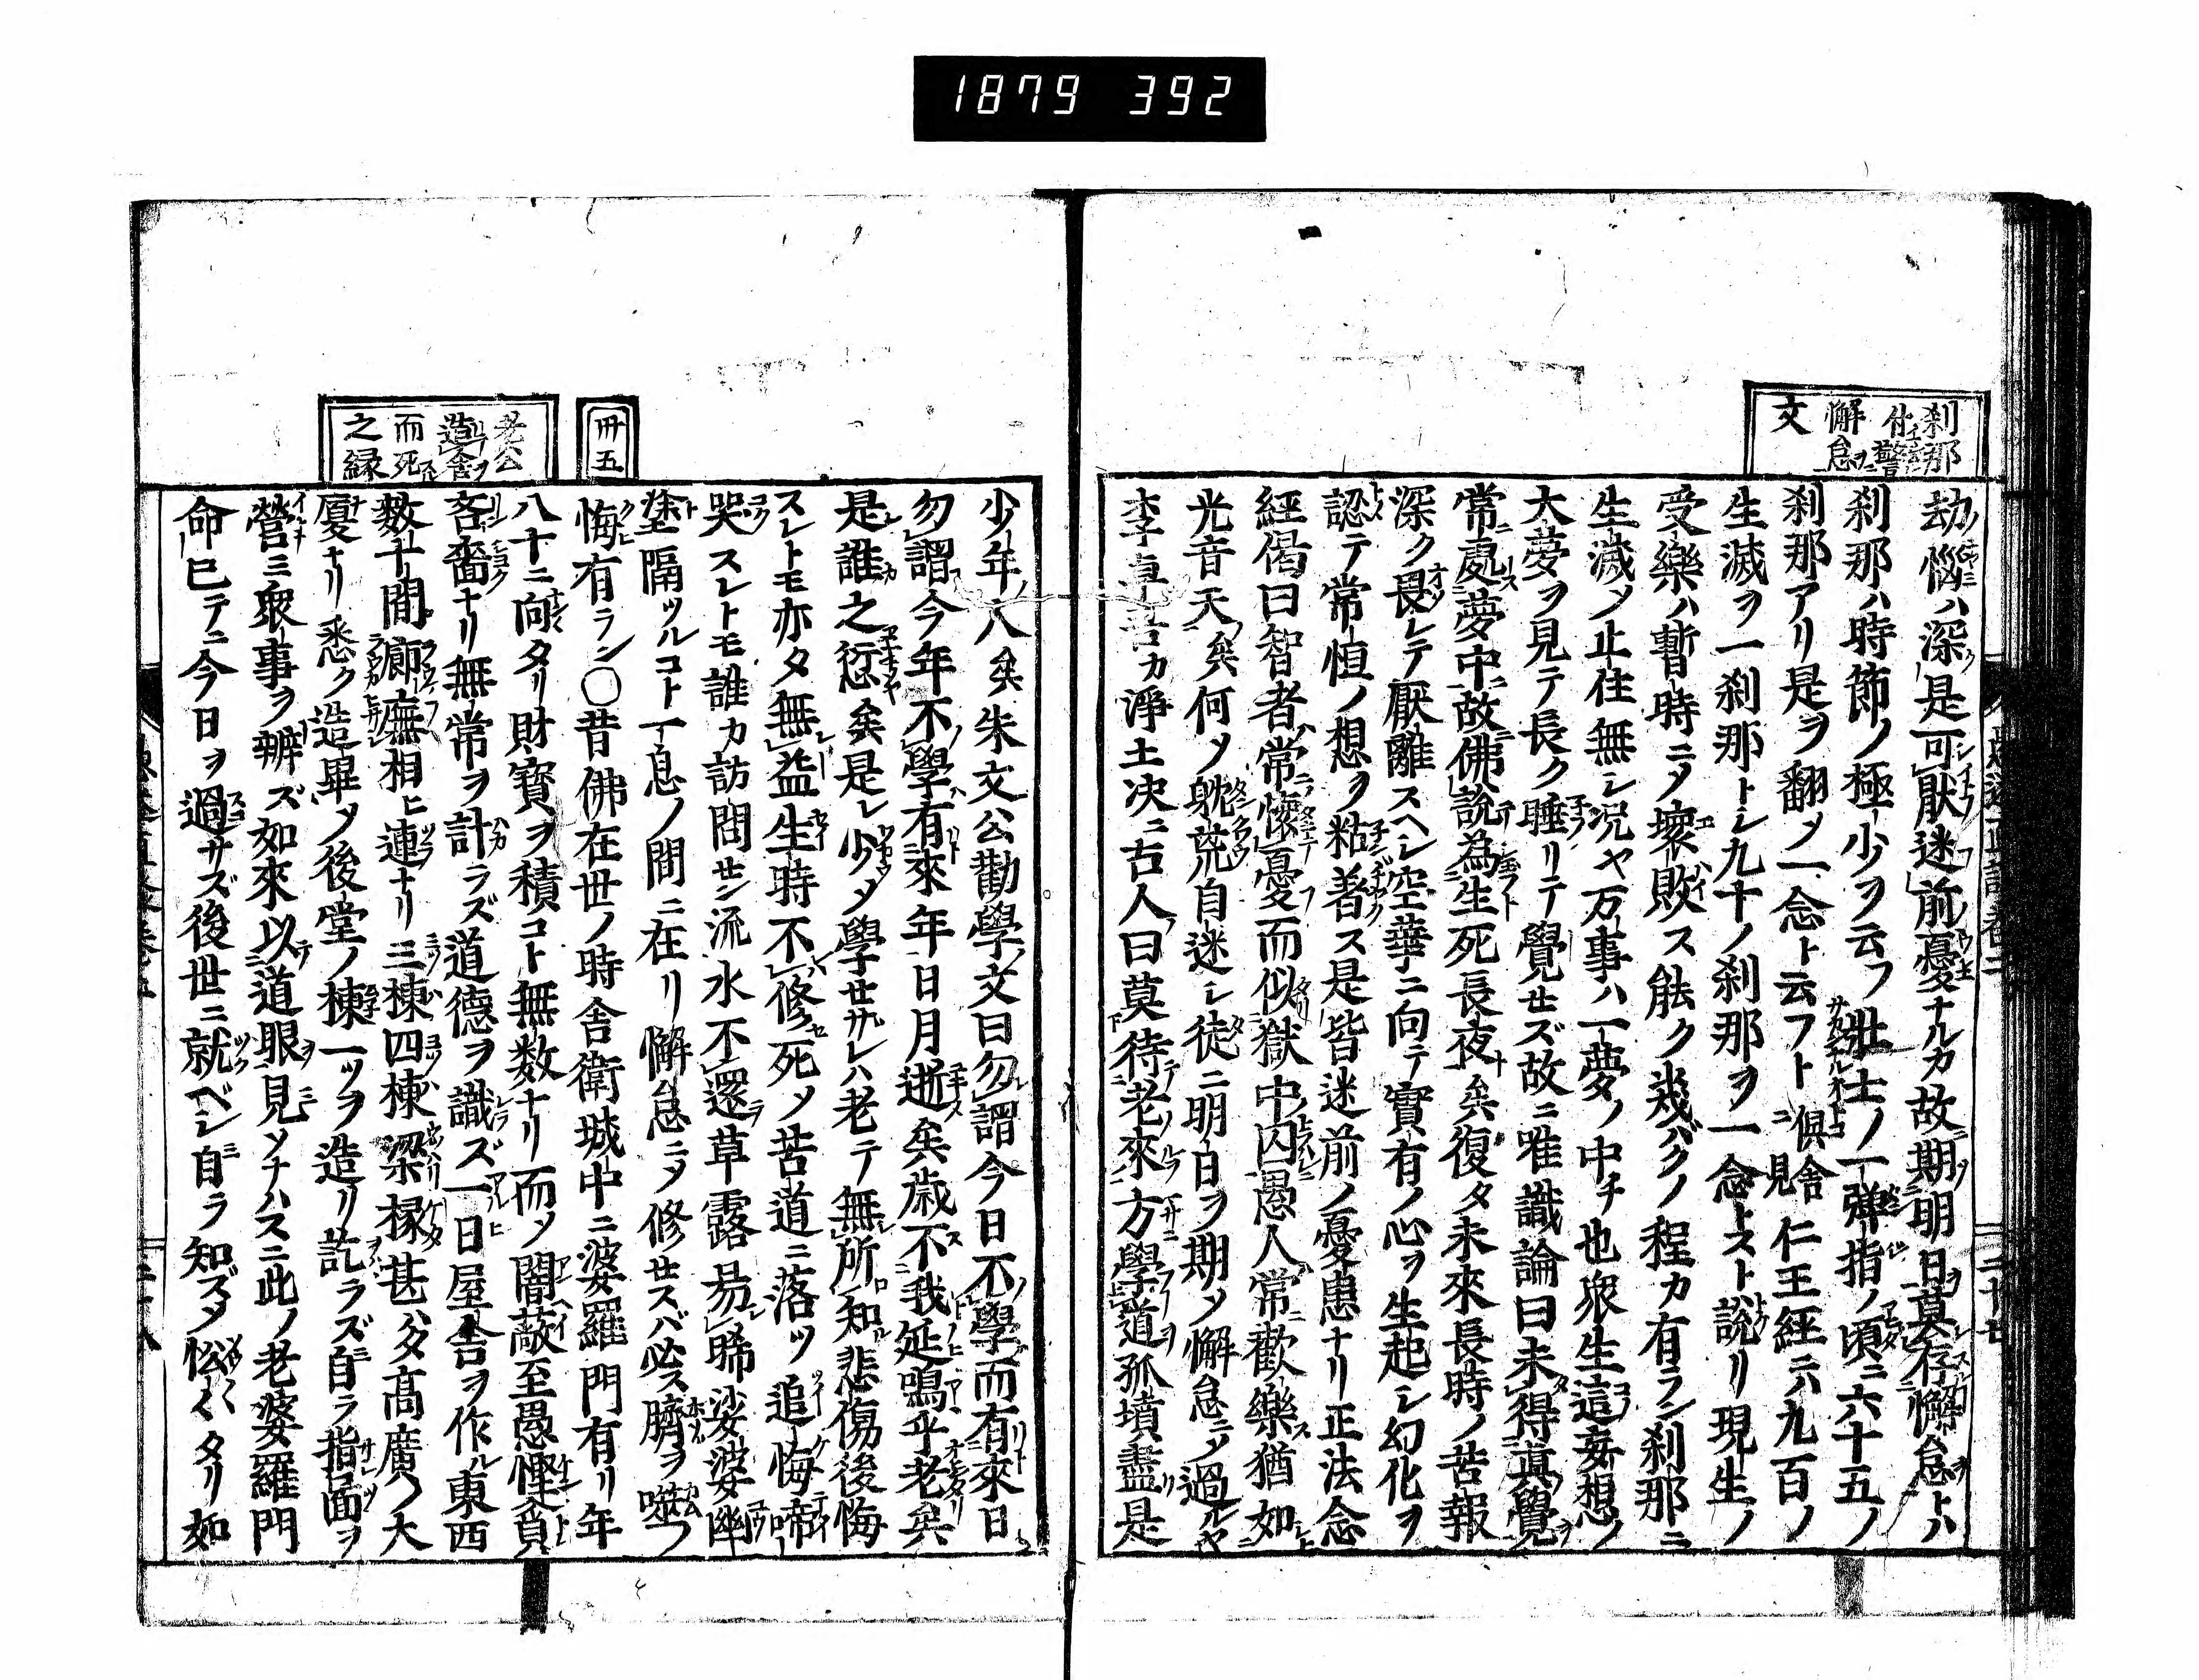 1879 392
刹那
付警
懈怠ヲ
文
劫惱ハ深ク是可厭迷前ノ憂ナルカ故期明日莫存懈怠トハ
刹那ハ時節ノ極少ヲ云フ壯士ノ一彈指ノ頃ニ六十五ノ
刹那アリ是ヲ翻メ一念ト云フト俱舍ニ見 仁王經ニ六九百ノ
生滅ヲ一刹那トシ九十ノ刹那ヲ一念トスト說リ現生ノ
受樂ハ暫時ニメ壞敗ス能ク幾バクノ程カ有ラン刹那ニ
生滅メ止住無シ況ヤ万事ハ一夢ノ中チ也衆生這妄想ノ
大夢ヲ見テ長ク睡リテ覺セズ故ニ唯識論曰未得眞覺
常處夢中故佛說為生死長夜矣復タ未來長時ノ苦報
深ク畏レテ厭離スヘシ空華ニ向テ實有ノ心ヲ生起シ幻化ヲ
認テ常恒ノ想ヲ粘著ス是皆迷前ノ憂患ナリ正法念
經偈曰智者常懷憂而似獄中囚愚人常歡樂猶如
光音天矣何メ躭荒自迷シ徒ニ明白ヲ期メ懈怠ニメ過ルヤ
李卓吾カ淨土決ニ古人曰莫待老來方學道孤墳盡是
少年人矣朱文公勸學文曰勿謂今日不學而有來日
勿謂今年不學有來年日月逝矣歲不我延嗚乎老矣
是誰之愆矣是レ少メ學セサレハ老テ無所知悲傷後悔
スレトモ亦タ無益生時不修死メ苦道ニ落ツ追悔啼
哭スレトモ誰カ訪問セン流水不還草露易晞娑婆幽
塗隔ツルコト一息ノ間ニ在リ懈怠ニメ修セスバ必ス臍ヲ噬ノ
悔有ラン○昔佛在世ノ時舍衛城中ニ婆羅門有リ年
八十ニ向タリ財寶ヲ積コト無数ナリ而メ闇蔽至愚慳貪
吝嗇ナリ無常ヲ計ラズ道德ヲ識ズ一日屋舍ヲ作ル東西
数十間廊廡相ヒ連ナリ三棟四棟梁椽甚ハタ高廣ノ大
廈ナリ悉ク造畢メ後堂ノ棟一ツヲ造リ訖ラズ自ラ指面ヲ
營ミ衆事ヲ辨ズ如來以道眼見ソナハスニ此ノ老婆羅門
命已テニ今日ヲ過サズ後世ニ就ベシ自ラ知ズメ忪々タリ如
卅五
老公
造舍ヲ
而死
之縁
二十七